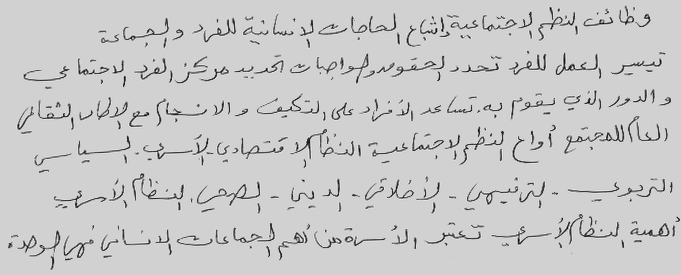 وظائف النظم الاجتماعية إشباع الحاجات الانسانية للفرد والجماعة
تيسير العمل للفرد تحدد الحقوق والواجبات تحديد مركز الفرد الاجتماعي
والدور الذي يقوم به. تساعد الأفراد على التكيف والانسجام مع الاطار الثقافي
العام للمجتمع أنواع النظم الاجتماعية النظام الاقتصادي - الأسري - السياسي
التربوي - الترفيهي - الأخلاقي - الديني - الصحي. النظام الأسري
أهمية النظام الأسري تعتبر الأسرة من أهم الجماعات الانساني فهي الوحدة